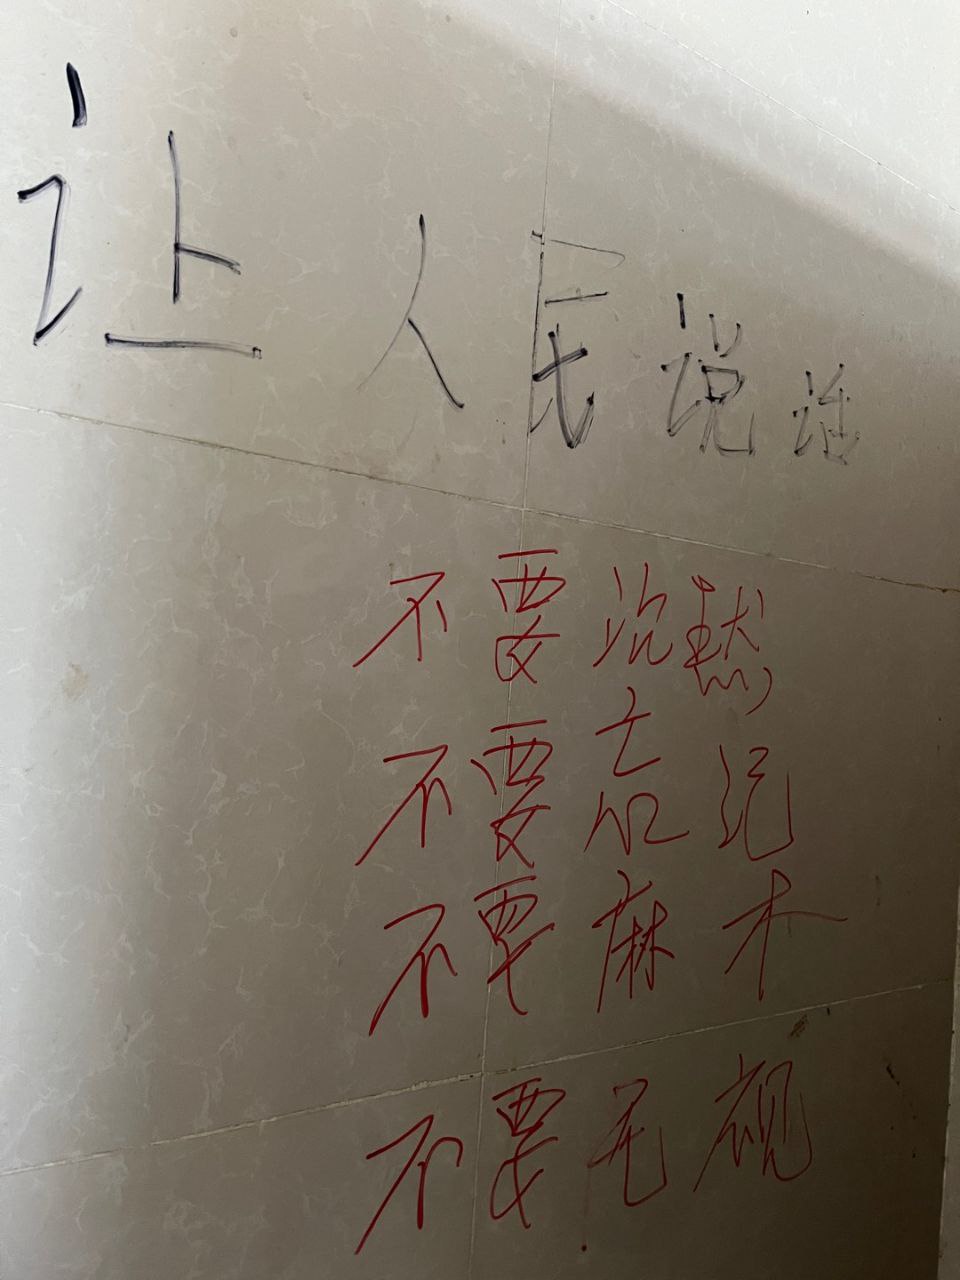 让人民说话
不要沉默
不要忘记
不要麻木
不要无视